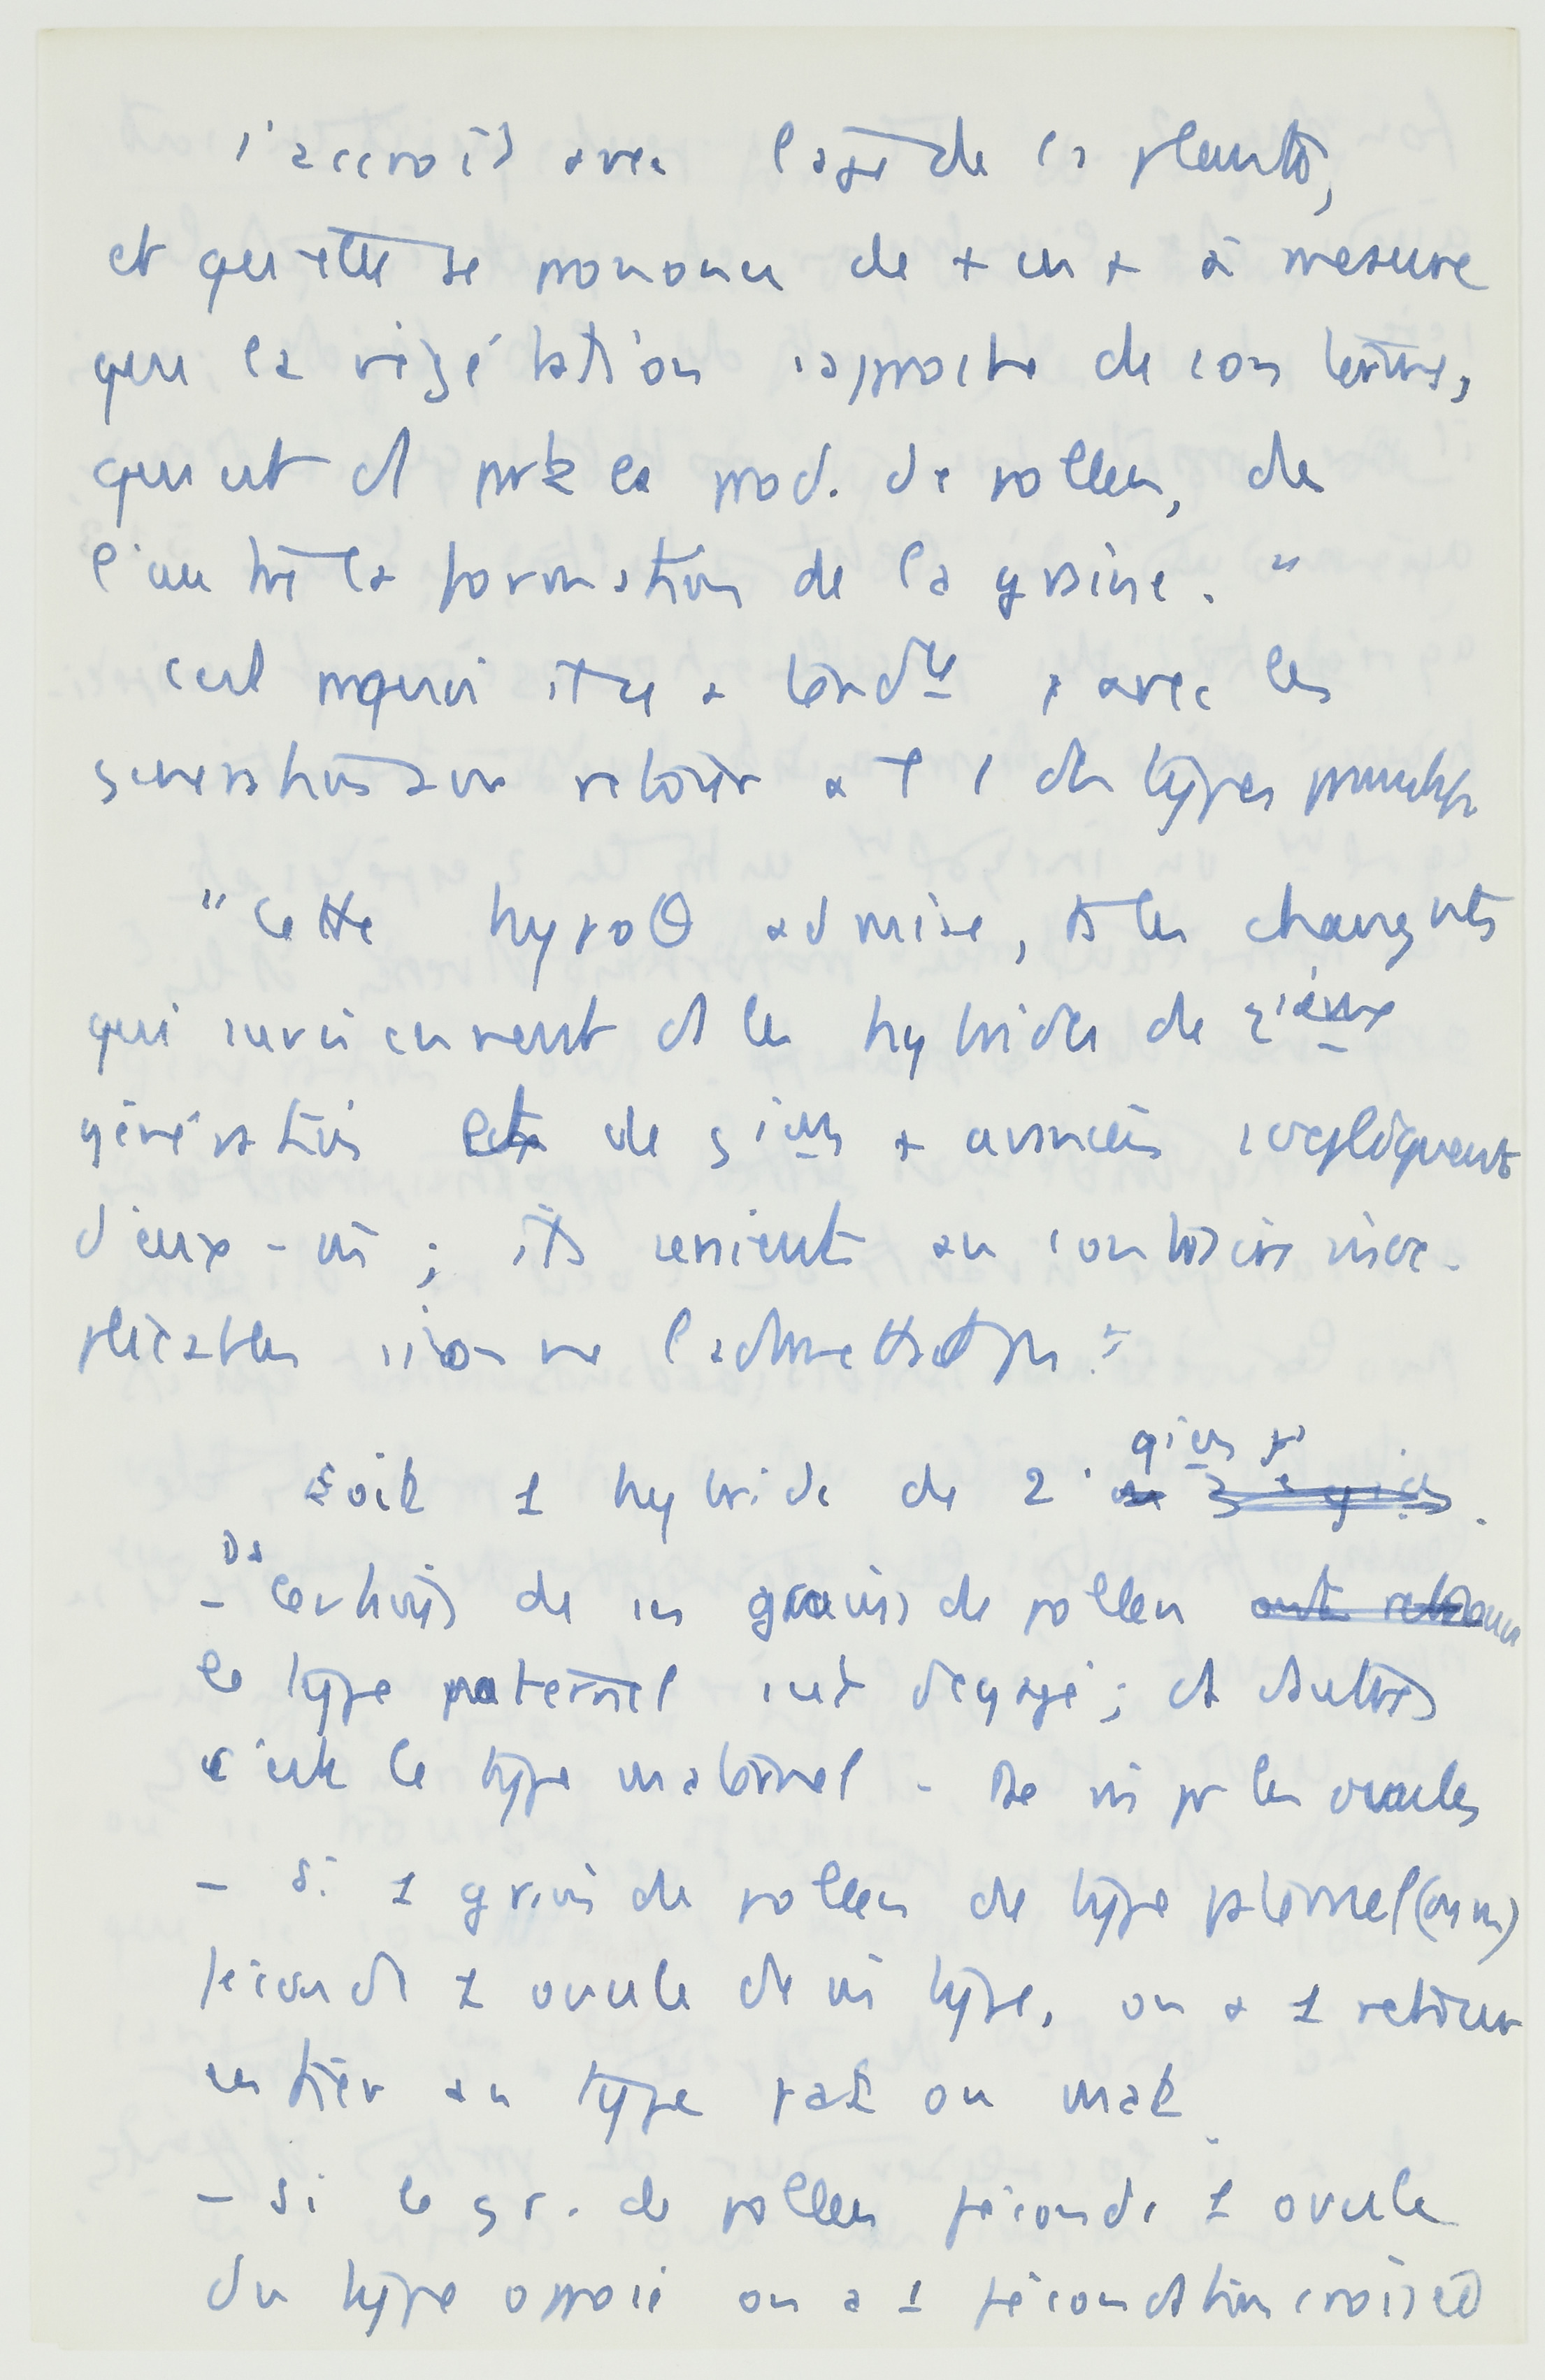 s'accroît avec l'âge de la plante,
et qu'elle se prononce de + en + à mesure
que la végétation approche de son terme,
qui est d prt la prod. de pollen, de
l'autre la formation de la graine. "
c'est pourquoi tendce avec les
générations à un retour à l'1 des types
" Cette hypoθ admise, ts les changnts
qui surviennent ds les hybrides de 2ième
génération et de gions + avancées s'expliquent
d'eux-m̂ ; ils seraient au contraire inex-
plicables si on ne l'admettait pas. "
Soit 1 hybride de 2 gions
- Ds certains de ses grains de pollen ont
le type paternel s'est dégagé ; ds d'autres
c'est le type maternel - De m̂ pr les ovules
- Si 1 grain de pollen de type paternel (ou m)
féconde 1 ovule de m̂ type, on a 1 retour
entier au type pat ou mat.
- Si le gr. de pollen féconde 1 ovule
du type opposé on a 1 fécondation croisée